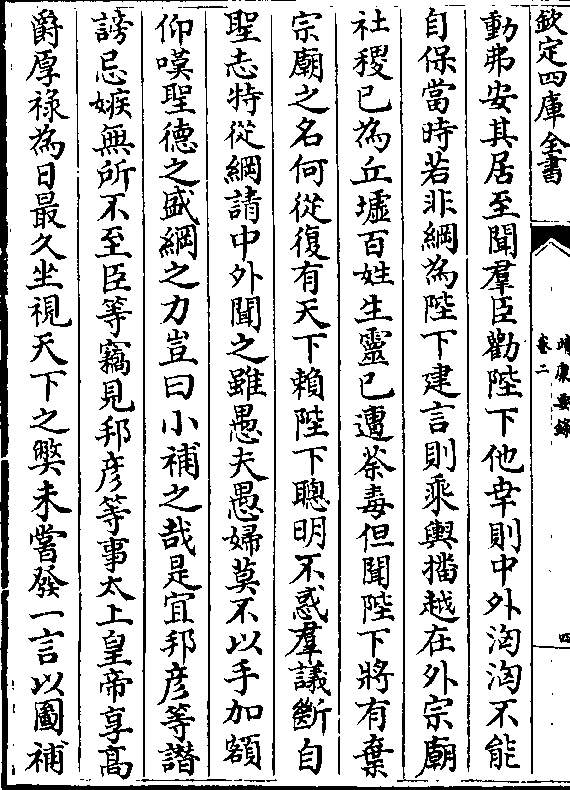 欽定四庫全書
靖康要錄
卷二
四
動弗安其居至聞羣臣勸陛下他幸則中外洶洶不能
自保當時若非綱為陛下建言則乗輿播越在外宗廟
社稷已為丘墟百姓生靈已遭荼毒但聞陛下將有棄
宗廟之名何從復有天下賴陛下聰明不惑羣議斷自
聖志特從綱請中外聞之雖愚夫愚婦莫不以手加額
仰嘆聖德之盛綱之力豈曰小補之哉是宜邦彦等譖
謗忌嫉無所不至臣等竊見邦彦等事太上皇帝享髙
爵厚祿為日最久坐視天下之獘未嘗發一言以圖補